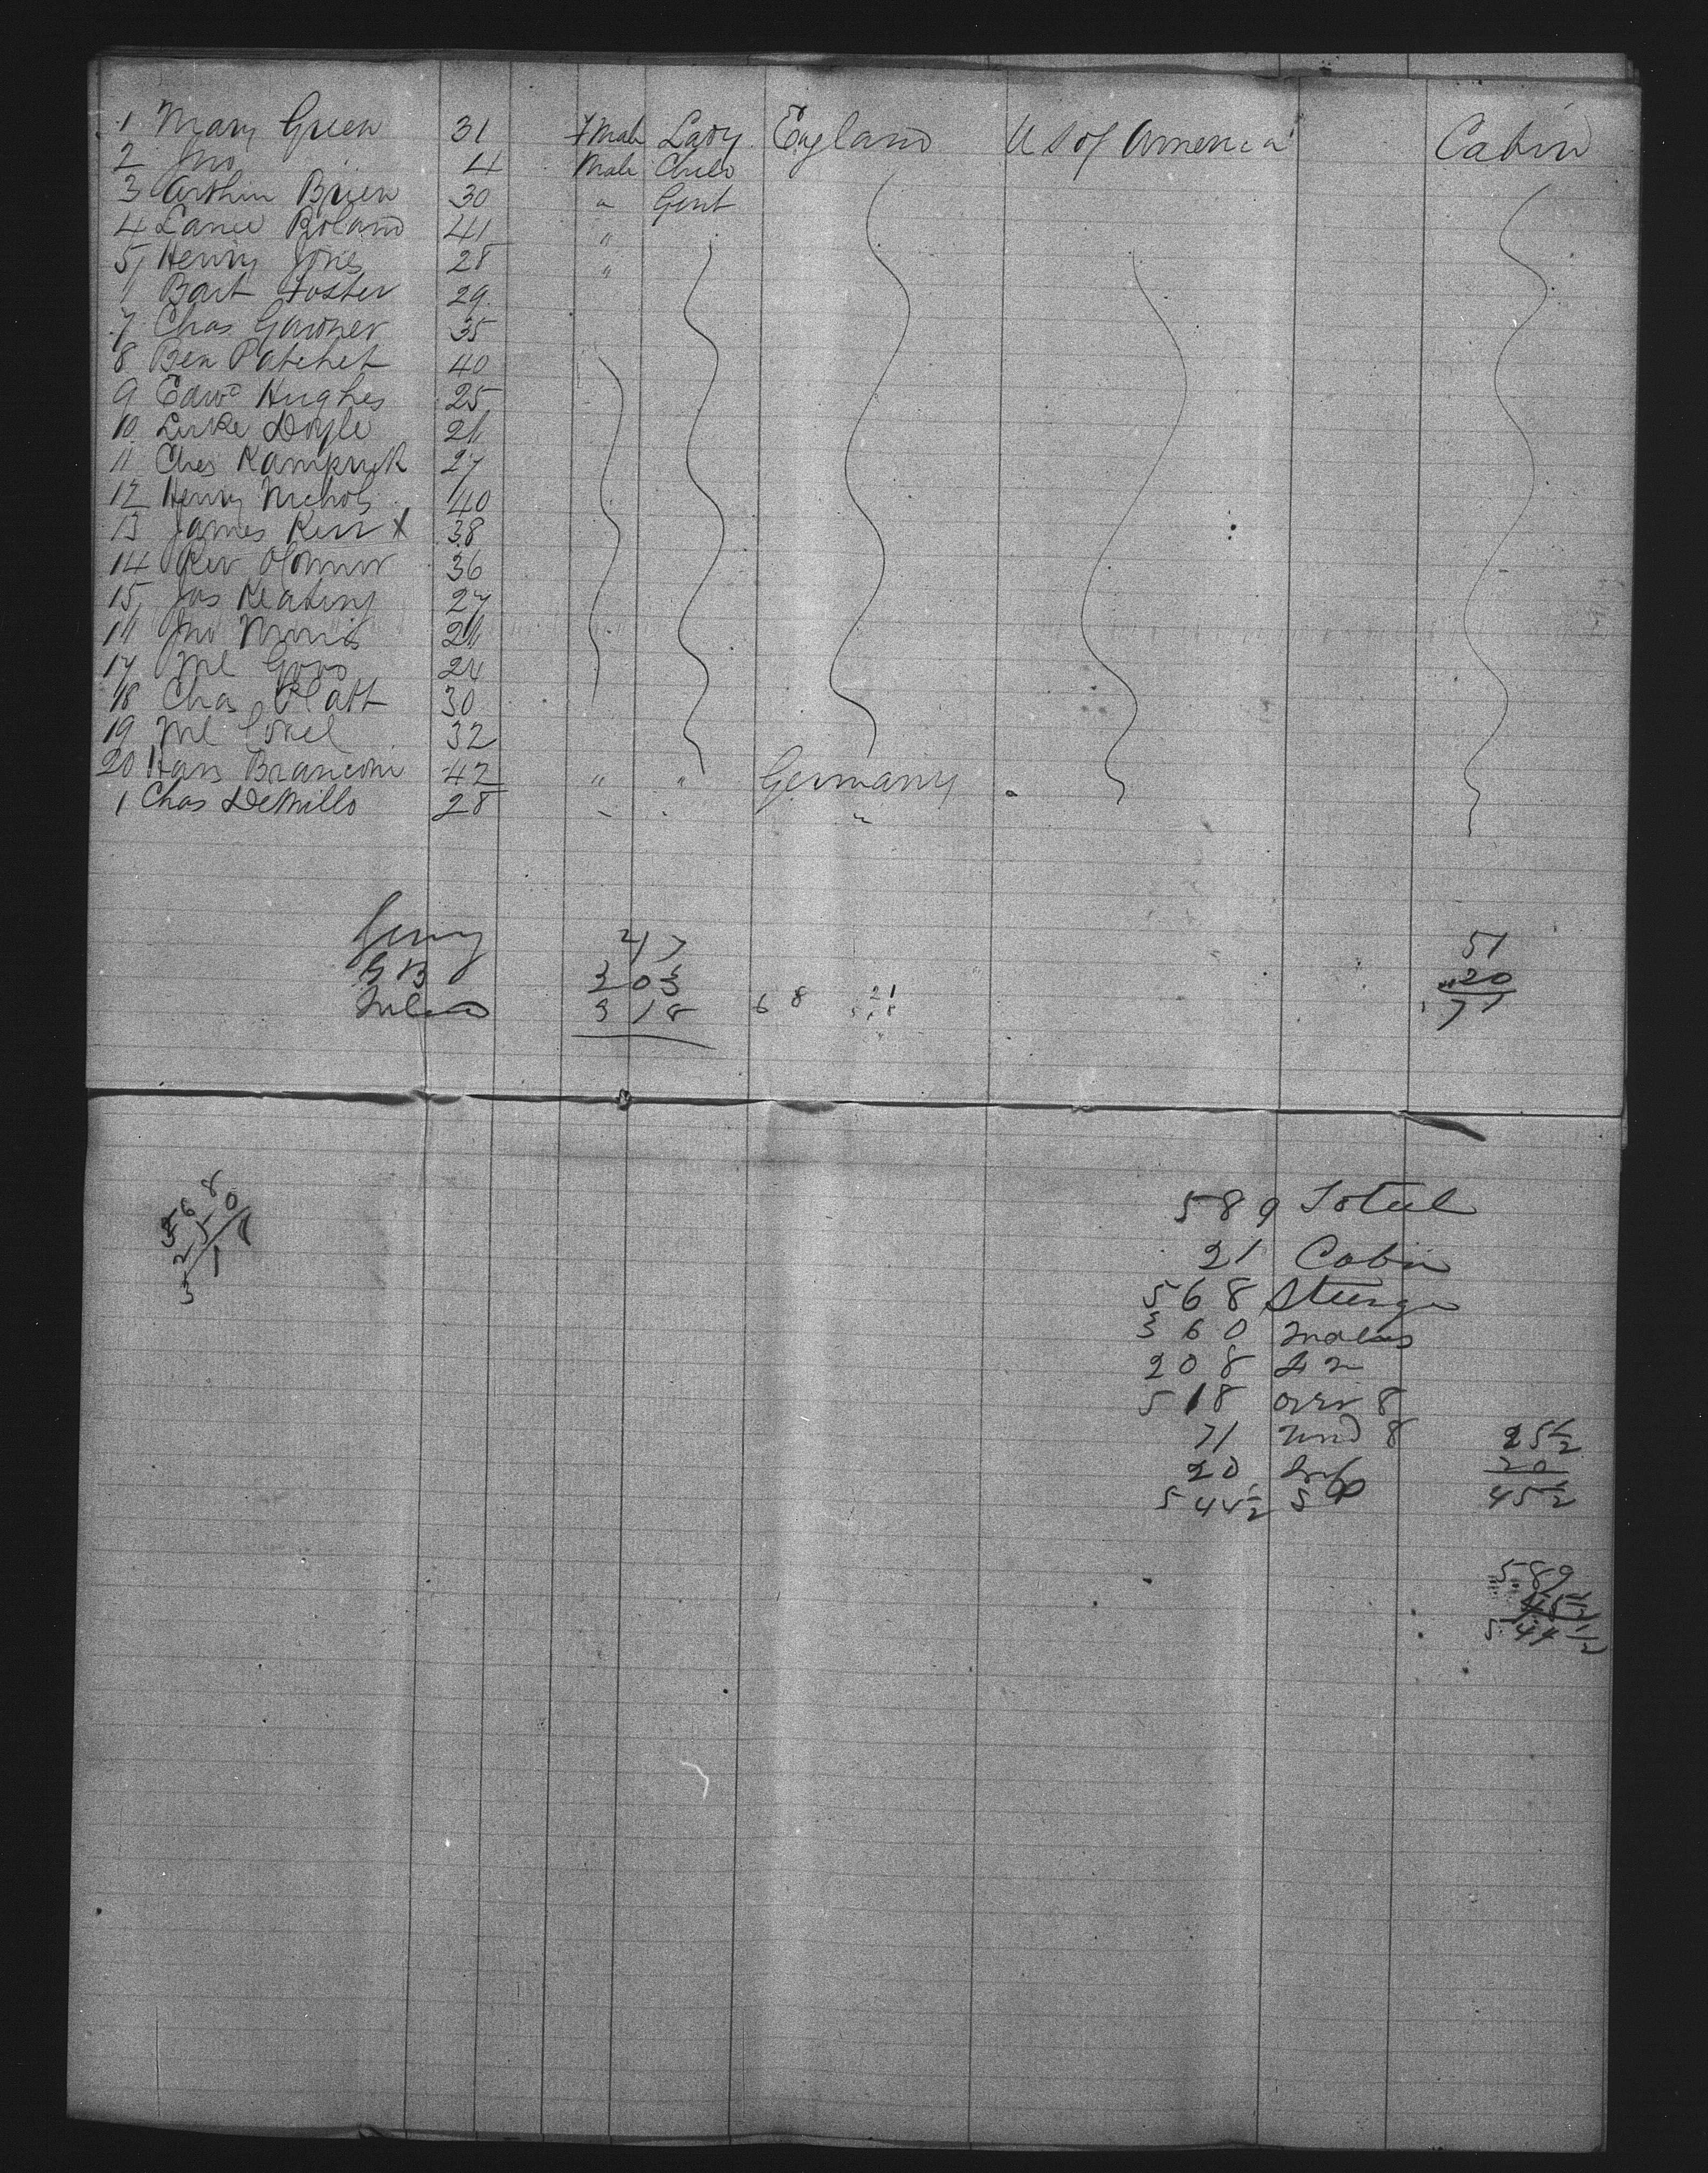 1 Mary Green 31 Fmale Lady England U S of America Cabin
2 Jno 4 Male Child
3 Arthur Brien 30 " Gent
4 Lance Boland 41 "
5 Henry Jones 28 "
Bart Foster 29
7 Chas Gardner 35
8 Ben Patchet 40
9 Edwd Hughes 25
10 Luke Doyle 26
11 Ches 27
12 Henry Nichols 40
13 James Kerr X 38
14 Rev OConnor 36
15 Jas Keating 27
16 Jno Morris 26
17 Ml 24
18 Chas Platt 30
19 Ml 32
20 Hans 42 " " Germany "
1 Chas DeMillo 28 " " "
Germy 47 51
G B 203 20
318 68 21 71
568
250
318
589 Total
21 Cabin
568 Steerage
360 Males
208
518 over 8
71 und 8 25½
20 Inf 20
544½ S 45½
589
45½
544½